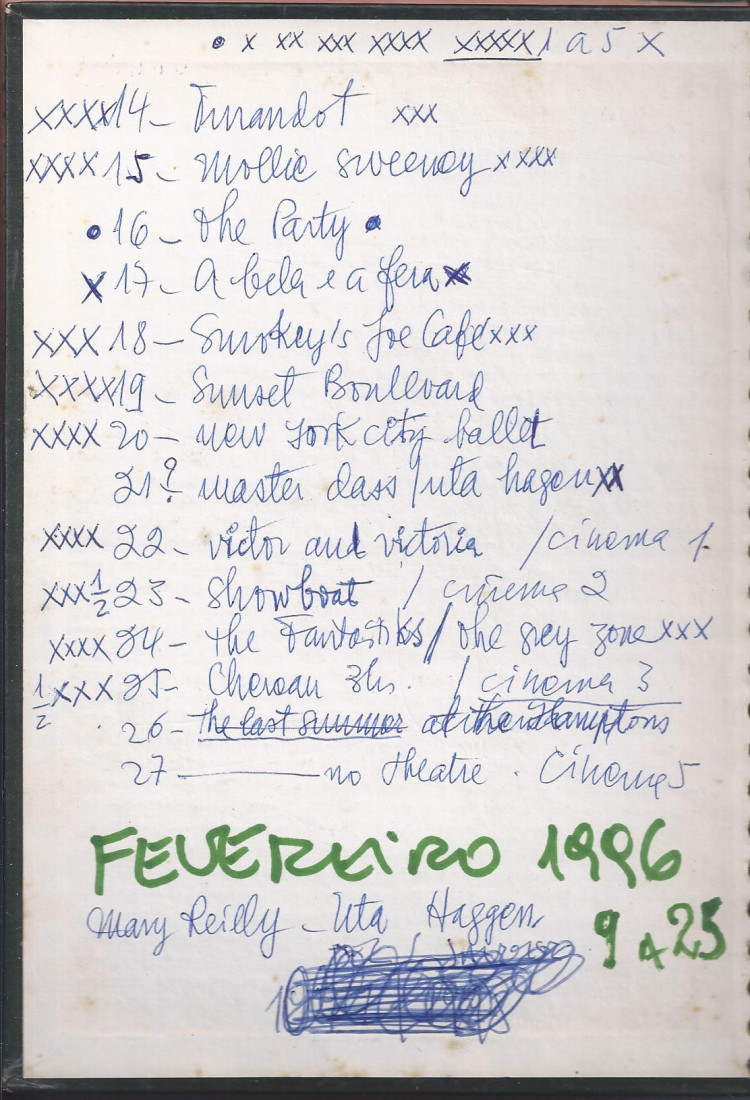 • x xx xxx xxxx xxxxx 1 a 5 x
xxxx 14 – Turandot xxx
xxxx 15 – Mollie Sweeney xxxx
• 16 – The Party •
x 17 – A bela e a fera x
xxx 18 – Smokey's Joe Café xxx
xxxx 19 – Sunset Boulevard
xxxx 20 – new york city ballet
21 ? – master class / uta hagen xx
xxxx 22 – victor and victoria / cinema 1
xxx 1/2 23 – Showboat / cinema 2
xxxx 24 – the Fantastiks / the grey zone xxx
1/2 xxx 25 – 3hs. / cinema 3
26 – the last summer at the Hamptons
27 – no theatre . Cinema 5
FEVEREIRO 1996
Mary Reilly – Uta Haggen
9 A 25